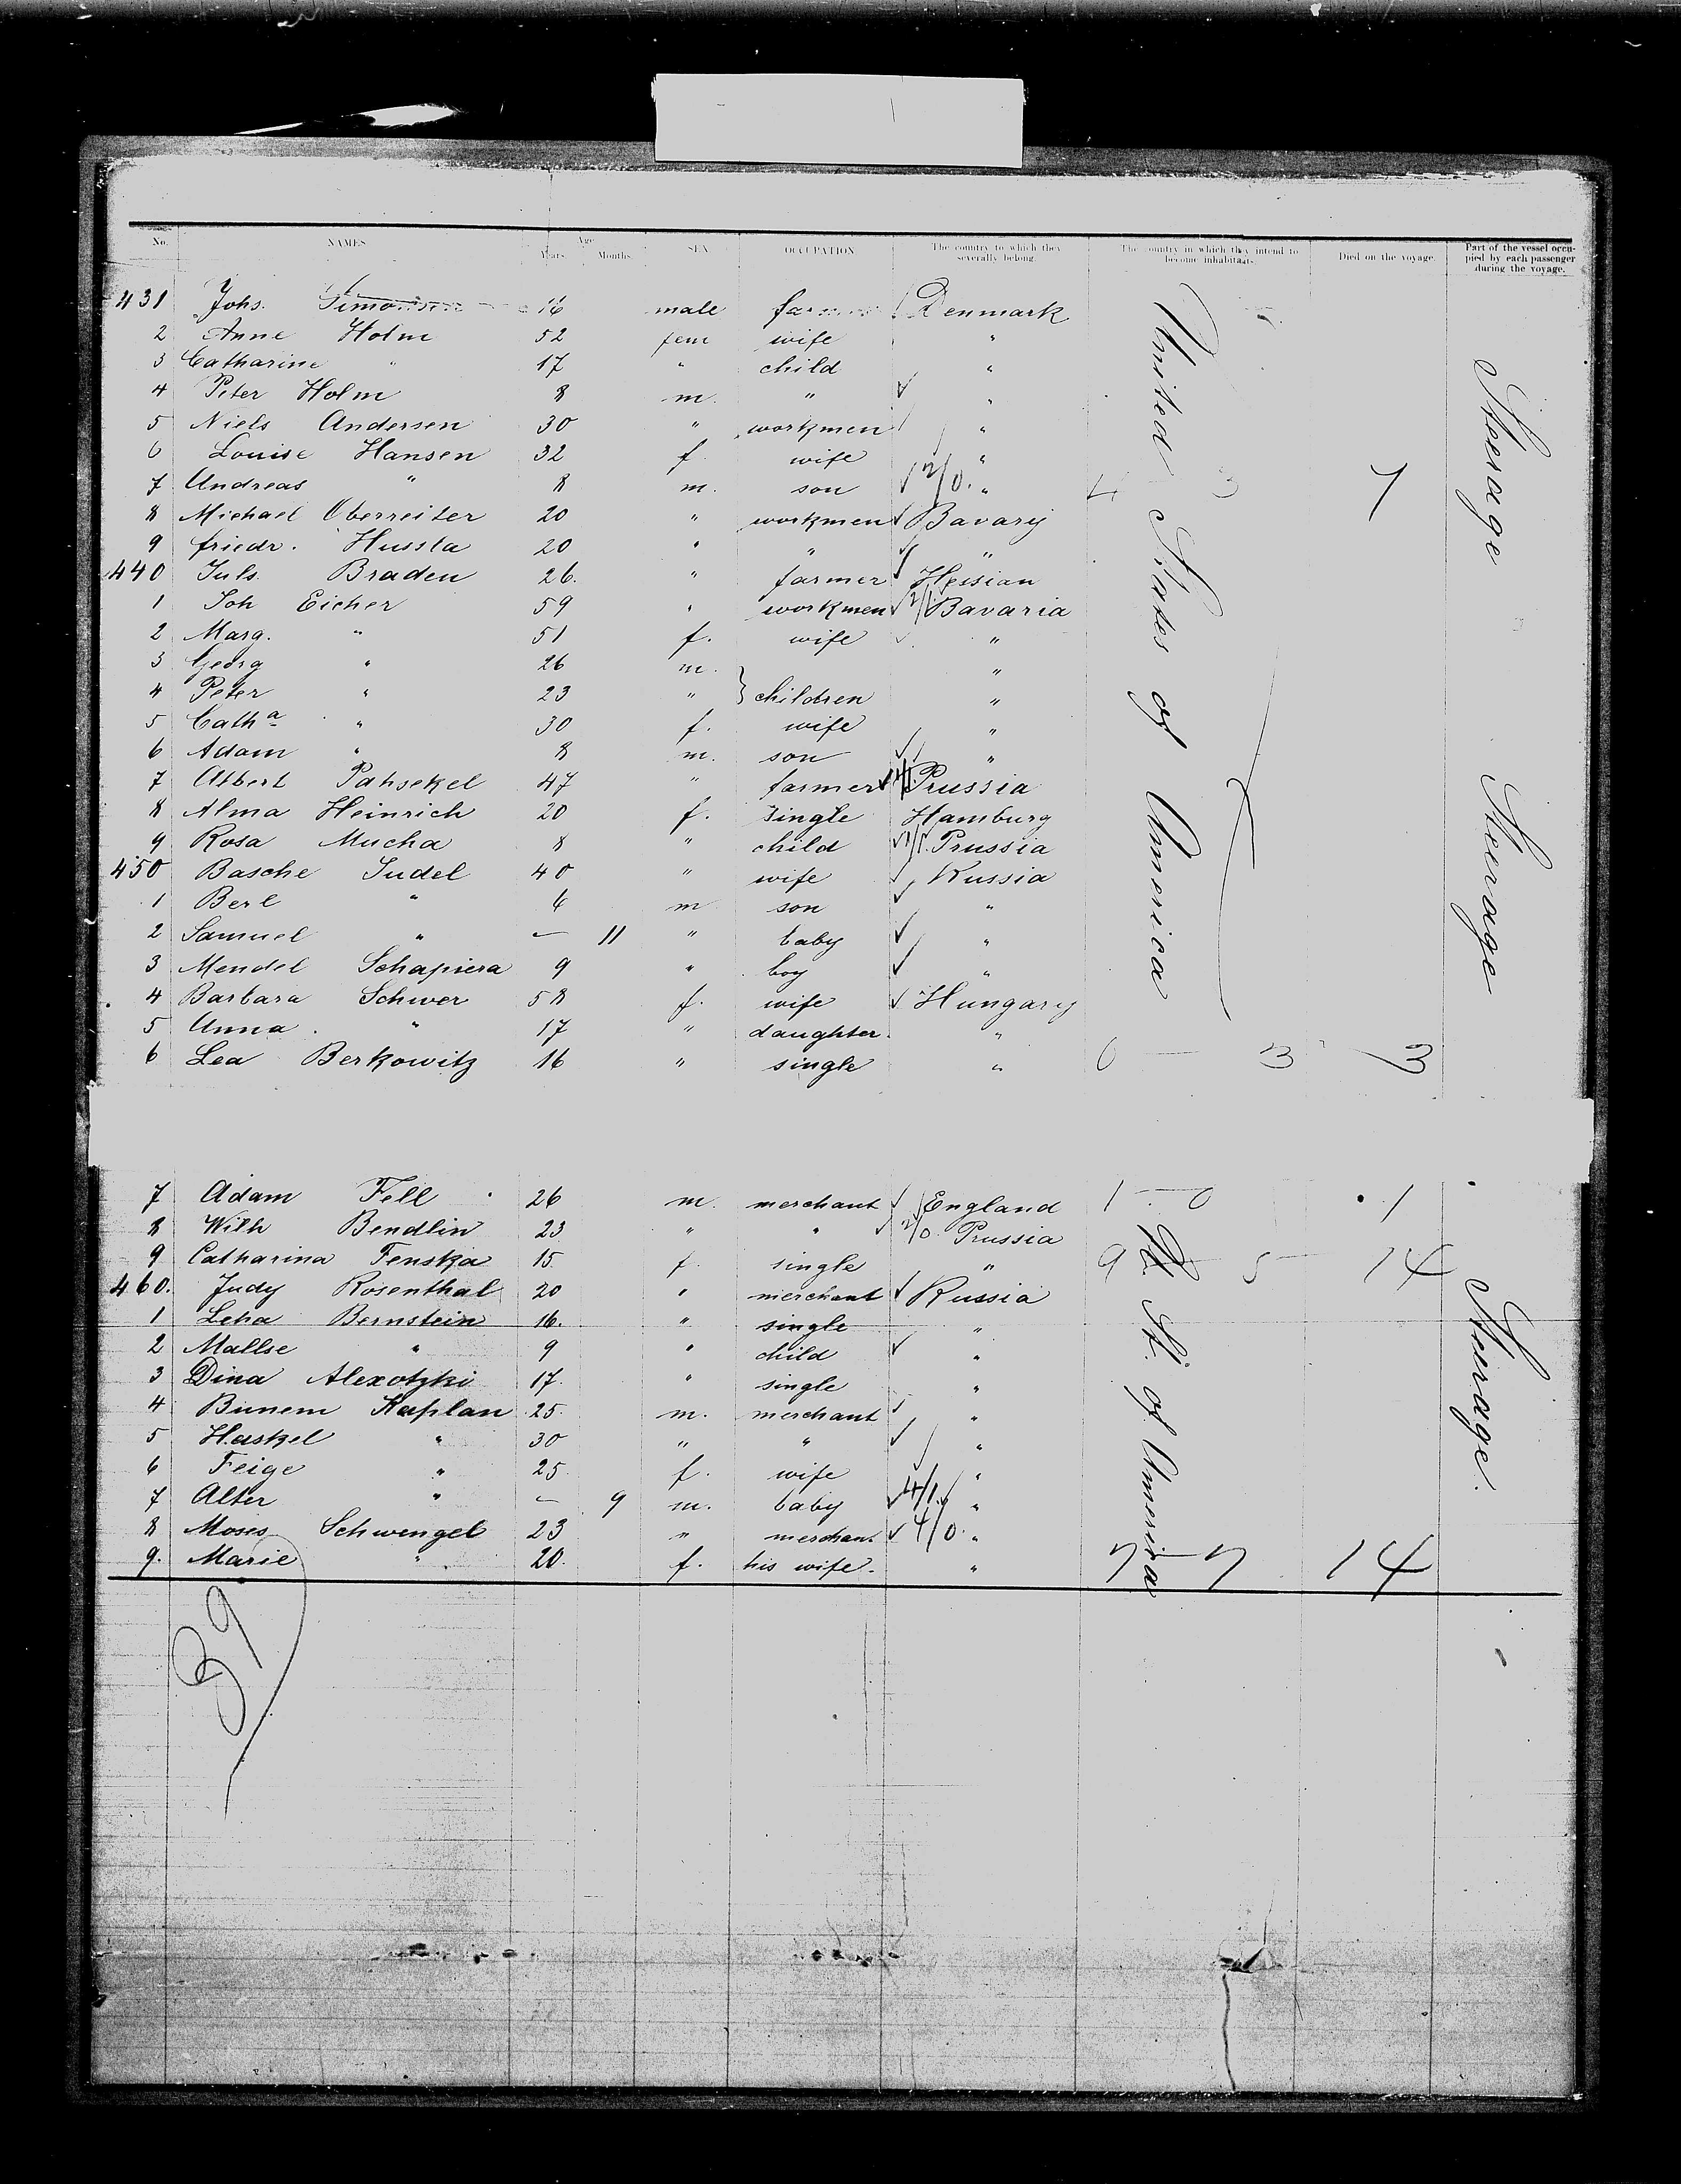 No. NAMES Age Years Months SEX OCCUPATION The country to which they severally belong. The country in which they intend to become inhabitants. Died on the voyage. Part of the vessel occupied by each passenger during the voyage.
431 Johs. Simonsen 16 male farmer Denmark
2 Anne Holm 52 fem wife "
3 Catharine " 17 " child "
4 Peter Holm 8 m. " "
5 Niels Andersen 30 " workmen "
6 Louise Hansen 32 f wife "
7 Andreas " 8 m. son 2/0. "
8 Michael Oberreiter 20 " workmen Bavary
9 friedr. Hussla 20 " " "
440 Juls. Braden 26. " farmer Hessian
1 Joh Eicher 59 " workmen 2/1. Bavaria
2 Marg. " 51 f. wife "
3 Georg " 26 m. "
4 Peter " 23 " } children "
5 Cath a " 30 f. wife "
6 Adam " 8 m. son "
7 Albert Pahsekel 47 " farmer Prussia
8 Alma Heinrich 20 f. single Hamburg
9 Rosa Mucha 8 " child 1/1. Prussia
450 Basche Judel 40 " wife Russia
1 Berl " 6 m son "
2 Samuel " — 11 " baby "
3 Mendel Schapiera 9 " boy "
4 Barbara Schwer 58 f. wife Hungary
5 Anna " 17 " daughter. "
6 Lea Berkowitz 16 " single "
United States of America
Steerage
Steerage
7 Adam Fell 26 m. merchant England 1 - 0 1
8 Wilh Bendlin 23 " " 2/0 Prussia
9 Catharina Fenska 15 f. single " 9 5 14
460. Judy Rosenthal 20 " merchant Russia
1 Leha Bernstein 16. " single "
2 Mallse " 9 " child "
3 Dina Alexotzki 17. " single "
4 Bunem Kaplan 25. m. merchant "
5 Haskel " 30 " " "
6 Feige " 25. f. wife "
7 Alter " — 9 m. baby 4/1. "
8 Moses Schwengel 23 " merchan. 4/0. "
9. Marie " 20. f. his wife. " 7 7 14
St. of America
Steerage.
39